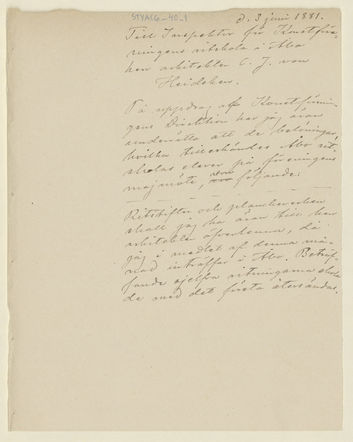 STYACG-40_1
d. 3 juni 1881.
Till Inspektor för Konstföre-
ningens ritskola i Åbo
herr arkitekten C. J. von
Heideken.
På uppdrag af Konstförenin-
gens Direktion har jag äran
underrätta att de belöningar,
hvilka tillerkändes Åbo rit-
skolas elever på föreningens
majmöte, äro följande:
Ritstiften och planscherna
skall jag ha äran till herr
arkitekten öfverlemna, då
jag i medlet af denna må-
nad inträffar i Åbo. Beträf-
fande sjelfva ritningarna skola
de med det första återsändas.